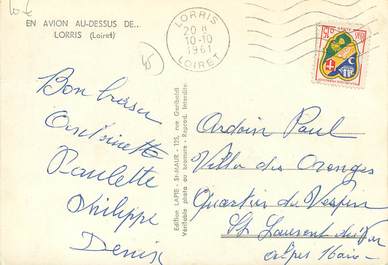 EN AVION AU-DESSUS DE..
LORRIS (Loiret)
LORRIS
20 H
10-10
1961
LOIRET
Bon baiser
Antoinette
Paulette
Philippe
Denix
Edition LAPIE - St-MAUR - 125, rue Garibaldi
Véritable photo au bromure - Reprod. Interdite
Ardoin Paul
Villa des Oranges
Quartier du Vespin
St Laurent du Var
Alpes Mari